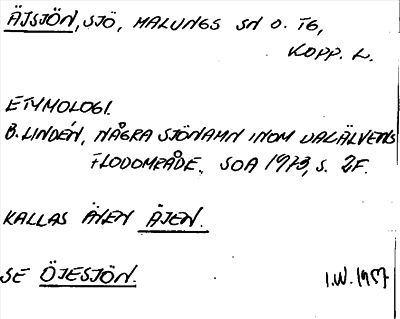 ÄJSJÖN, SJÖ, MALUNGS SN O. TG,
KOPP. L.
ETYMOLOGI.
B. LINDÉN, NÅGRA SJÖNAMN INOM DALÄLVENS
FLODOMRÅDE, SOA 1973, S. 2F.
KALLAS ÄVEN ÄJEN.
SE ÖJESJÖN. I.W. 1957